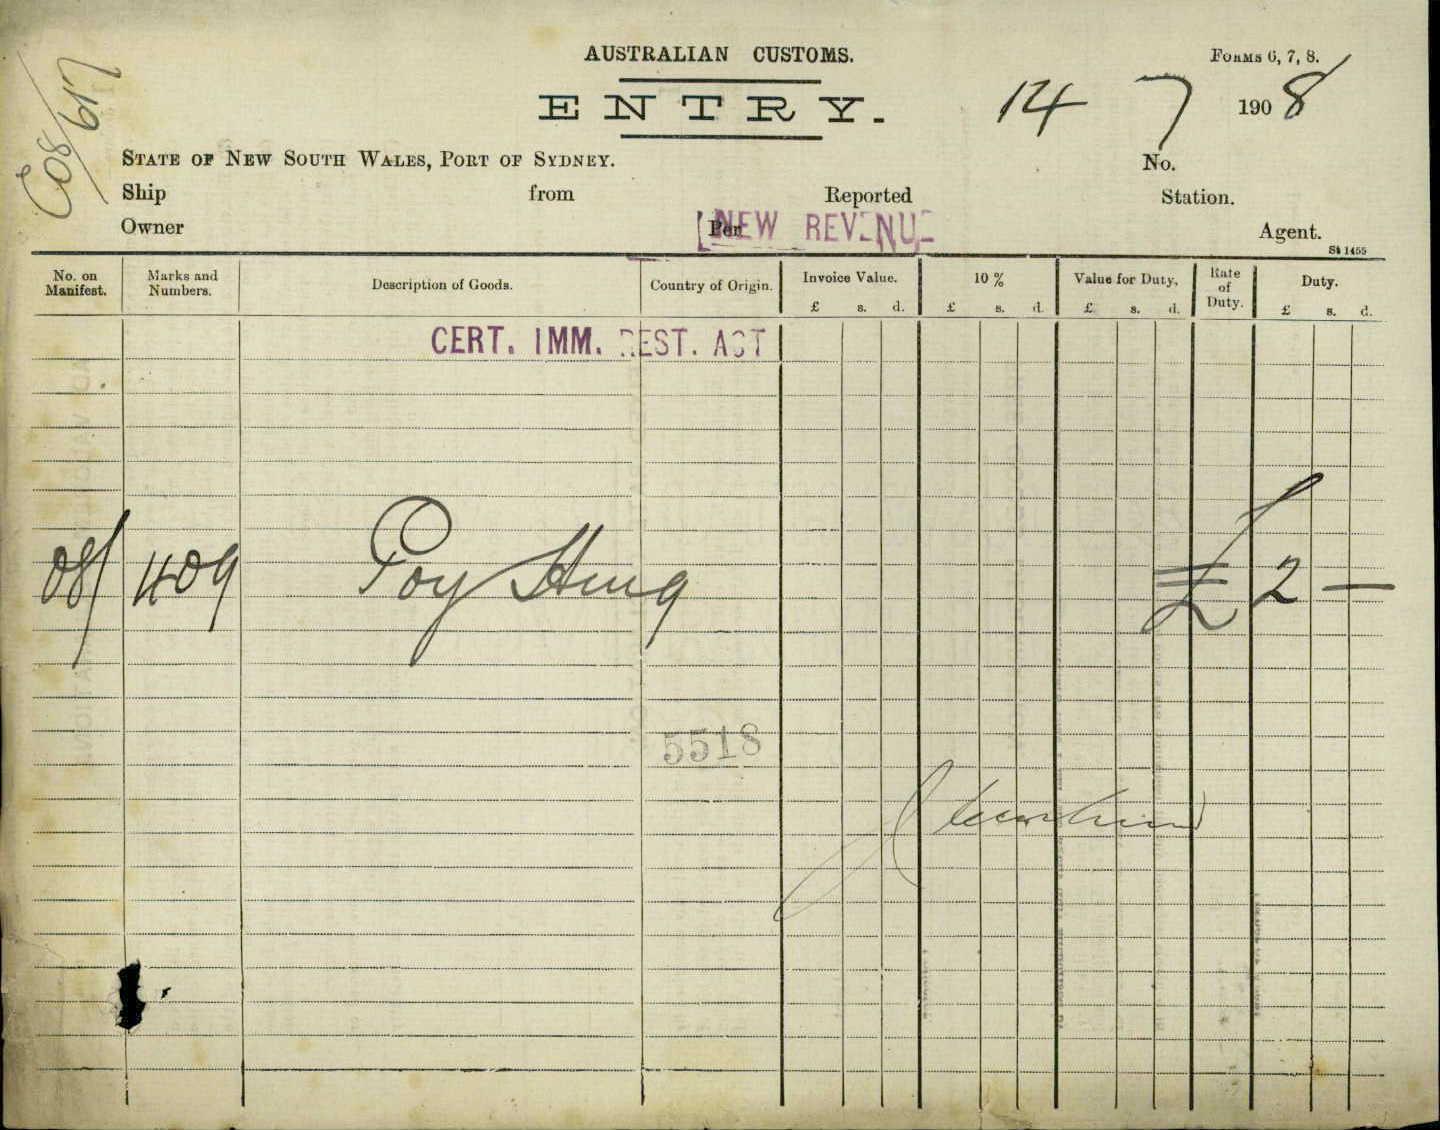 AUSTRALIAN CUSTOMS.
FORMS 6, 7, 8.
ENTRY.
14 7 1908
C08/617
STATE OF NEW SOUTH WALES, PORT OF SYDNEY.
No.
Ship from Reported Station.
Owner Per Agent.
NEW REVENUE
St 1455
No. on Manifest. Marks and Numbers. Description of Goods. Country of Origin. Invoice Value. 10 % Value for Duty, Rate of Duty. Duty.
£ s. d. £ s. d. £ s. d. £ s. d.
CERT. IMM. REST. ACT
08/ 409 Poy Hing £2 —
5518